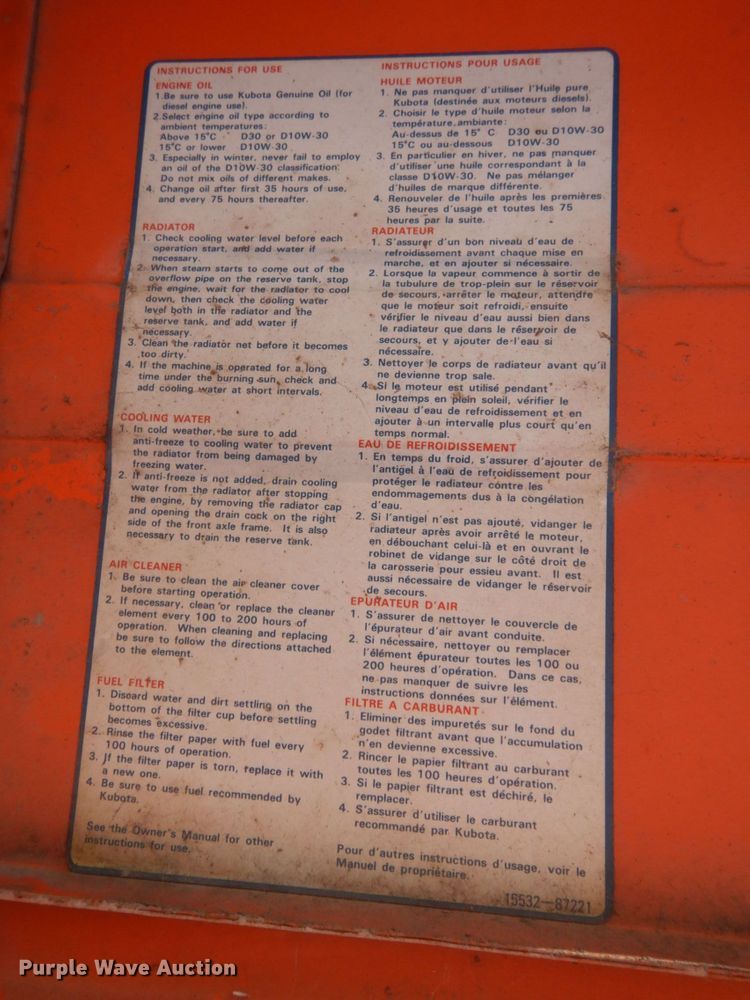 INSTRUCTIONS FOR USE
ENGINE OIL
1. Be sure to use Kubota Genuine Oil (for
diesel engine use).
2. Select engine oil type according to
ambient temperatures:
Above 15°C D30 or D10W-30
15°C or lower D10W-30
3. Especially in winter, never fail to employ
an oil of the D10W-30 classification.
Do not mix oils of different makes.
4. Change oil after first 35 hours of use,
and every 75 hours thereafter.
RADIATOR
1. Check cooling water level before each
operation start, and add water if
necessary.
2. When steam starts to come out of the
overflow pipe on the reserve tank, stop
the engine, wait for the radiator to cool
down, then check the cooling water
level both in the radiator and the
reserve tank, and add water if
necessary.
3. Clean the radiator net before it becomes
too dirty.
4. If the machine is operated for a long
time under the burning sun, check and
add cooling water at short intervals.
COOLING WATER
1. In cold weather, be sure to add
anti-freeze to cooling water to prevent
the radiator from being damaged by
freezing water.
2. If anti-freeze is not added, drain cooling
water from the radiator after stopping
the engine, by removing the radiator cap
and opening the drain cock on the right
side of the front axle frame. It is also
necessary to drain the reserve tank.
AIR CLEANER
1. Be sure to clean the air cleaner cover
before starting operation.
2. If necessary, clean or replace the cleaner
element every 100 to 200 hours of
operation. When cleaning and replacing
be sure to follow the directions attached
to the element.
FUEL FILTER
1. Disoard water and dirt settling on the
bottom of the filter cup before settling
becomes excessive.
2. Rinse the filter paper with fuel every
100 hours of operation.
3. If the filter paper is torn, replace it with
a new one.
4. Be sure to use fuel recommended by
Kubota.
See the Owner's Manual for other
instructions for use.
INSTRUCTIONS POUR USAGE
HUILE MOTEUR
1. Ne pas manquer d'utiliser l'Huile pure
Kubota (destinée aux moteurs diesels).
2. Choisir le type d'huile moteur selon la
température ambiante:
Au-dessus de 15° C D30 ou D10W-30
15°C ou au-dessous D10W-30
3. En particulier en hiver, ne pas manquer
d'utiliser une huile correspondant à la
classe D10W-30. Ne pas mélanger
d'huiles de marque différente.
4. Renouveler de l'huile après les premières
35 heures d'usage et toutes les 75
heures par la suite.
RADIATEUR
1. S'assurer d'un bon niveau d'eau de
refroidissement avant chaque mise en
marche, et en ajouter si nécessaire.
2. Lorsque la vapeur commence à sortir de
la tubulure de trop-plein sur le réservoir
de secours, arrêter le moteur, attendre
que le moteur soit refroidi, ensuite
vérifier le niveau d'eau aussi bien dans
le radiateur que dans le réservoir de
secours, et y ajouter de l'eau si
nécessaire.
3. Nettoyer le corps de radiateur avant qu'il
ne devienne trop sale.
4. Si le moteur est utilisé pendant
longtemps en plein soleil, vérifier le
niveau d'eau de refroidissement et en
ajouter à un intervalle plus court qu'en
temps normal.
EAU DE REFROIDISSEMENT
1. En temps du froid, s'assurer d'ajouter de
l'antigel à l'eau de refroidissement pour
protéger le radiateur contre les
endommagements dus à la congélation
d'eau.
2. Si l'antigel n'est pas ajouté, vidanger le
radiateur après avoir arrêté le moteur,
en débouchant celui-là et en ouvrant le
robinet de vidange sur le côté droit de
la carosserie pour essieu avant. Il est
aussi nécessaire de vidanger le réservoir
de secours.
EPURATEUR D'AIR
1. S'assurer de nettoyer le couvercle de
l'épurateur d'air avant conduite.
2. Si nécessaire, nettoyer ou remplacer
l'élément épurateur toutes les 100 ou
200 heures d'opération. Dans ce cas,
ne pas manquer de suivre les
instructions données sur l'élément.
FILTRE A CARBURANT
1. Eliminer des impuretés sur le fond du
godet filtrant avant que l'accumulation
n'en devienne excessive.
2. Rincer le papier filtrant au carburant
toutes les 100 heures d'opération.
3. Si le papier filtrant est déchiré, le
remplacer.
4. S'assurer d'utiliser le carburant
recommandé par Kubota.
Pour d'autres instructions d'usage, voir le
Manuel de propriétaire.
15532-87221
Purple Wave Auction